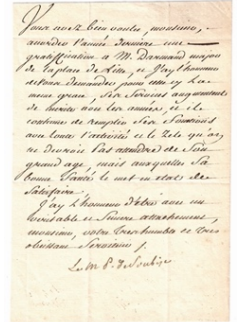 Vous avez bien voulu, monsieur,
accorder l'année derniere une
gratification a M. Darmand major
de la place de Lille, et J'ay l'honneur
de vous demander pour luy la
meme grace. Ses Services augmentent
de merites avec les années, et il
continue de remplir Ses fonctions
avec toute l'activité et le Zele qu'on
ne devroit Pas attendre de Son
grand age, mais auxquelles Sa
bonne Santé le met en etat de
Satisfaire.
J'ay L'honneur d'être avec un
veritable et Sincere attachement,
monsieur, votre tres humble et tres
obeissant Serviteur
Le M. P. de Soubise